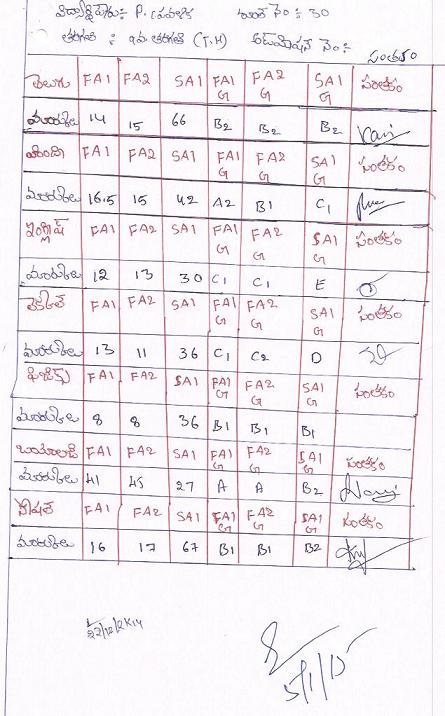 విద్యార్థి పేరు:- P. ప్రవళిక రూల్ నెం :- 30
తరగతి : 9వ తరగతి (T.M) అడ్మిషన్ నెం:-
సంతకం
తెలుగు FA1 FA2 SA1 FA1 G FA2 G SA1 G సంతకం
మార్కులు 14 15 66 B2 B2 B2
హిందీ FA1 FA2 SA1 FA1 G FA2 G SA1 G సంతకం
మార్కులు 16.5 15 42 A2 B1 C1
ఇంగ్లీష్ FA1 FA2 SA1 FA1 G FA2 G SA1 G సంతకం
మార్కులు 12 13 30 C1 C1 E
లెక్కలు FA1 FA2 SA1 FA1 G FA2 G SA1 G సంతకం
మార్కులు 13 11 36 C1 C2 D
ఫిజిక్స్ FA1 FA2 SA1 FA1 G FA2 G SA1 G సంతకం
మార్కులు 8 8 36 B1 B1 B1
బయాలజి FA1 FA2 SA1 FA1 G FA2 G SA1 G సంతకం
మార్కులు 41 45 27 A A B2
సోషల్ FA1 FA2 SA1 FA1 G FA2 G SA1 G సంతకం
మార్కులు 16 17 67 B1 B1 B2
22/12/2K14
5/1/15